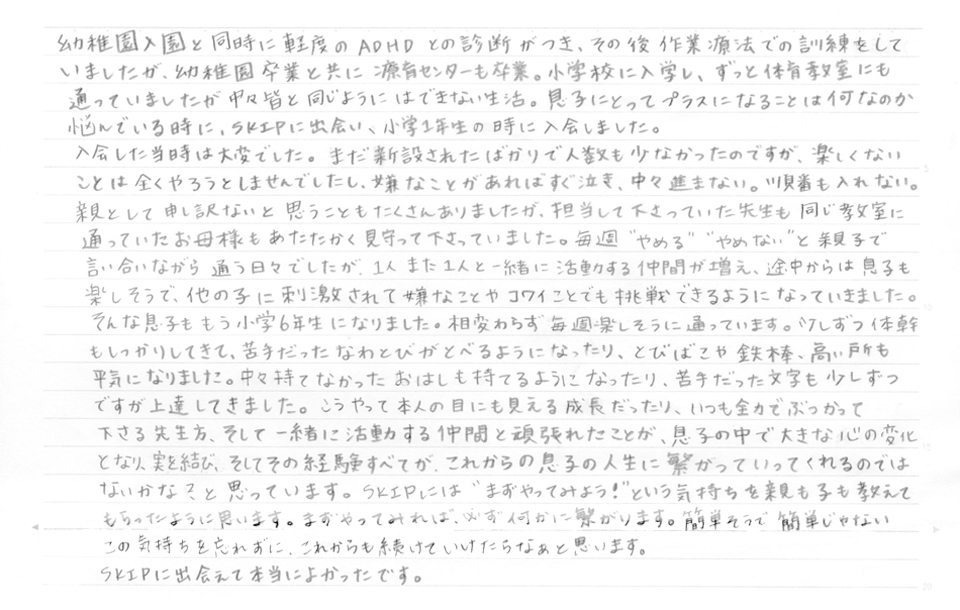 幼稚園入園と同時に軽度のADHDとの診断がつき、その後作業療法での訓練をして
いましたが、幼稚園卒業と共に療育センターも卒業。小学校に入学し、ずっと体育教室にも
通っていましたが中々皆と同じようにはできない生活。息子にとってプラスになることは何なのか
悩んでいる時に、SKIPに出会い、小学1年生の時に入会しました。
入会した当時は大変でした。まだ新設されたばかりで人数も少なかったのですが、楽しくない
ことは全くやろうとしませんでしたし、嫌なことがあればすぐ泣き、中々進まない。順番も入れない。
親として申し訳ないと思うこともたくさんありましたが、担当して下さっていた先生も同じ教室に
通っていたお母様もあたたかく見守って下さっていました。毎週"やめる""やめない"と親子で
言い合いながら通う日々でしたが、1人また1人と一緒に活動する仲間が増え、途中からは息子も
楽しそうで、他の子に刺激されて嫌なことやコワイことでも挑戦できるようになっていきました。
そんな息子ももう小学6年生になりました。相変わらず毎週楽しそうに通っています。少しずつ体幹
もしっかりしてきて、苦手だったなわとびがとべるようになったり、とびばこや鉄棒、高い所も
平気になりました。中々持てなかったおはしも持てるようになったり、苦手だった文字も少しずつ
ですが上達してきました。こうやって本人の目にも見える成長だったり、いつも全力でぶつかって
下さる先生方、そして一緒に活動する仲間と頑張れたことが、息子の中で大きな心の変化
となり、実を結び、そしてその経験すべてが、これからの息子の人生に繋がっていってくれるのでは
ないかなぁと思っています。SKIPには"まずやってみよう!"という気持ちを親も子も教えて
もらったように思います。まずやってみれば、必ず何かに繋がります。簡単そうで簡単じゃない
この気持ちを忘れずに、これからも続けていけたらなぁと思います。
SKIPに出会えて本当によかったです。